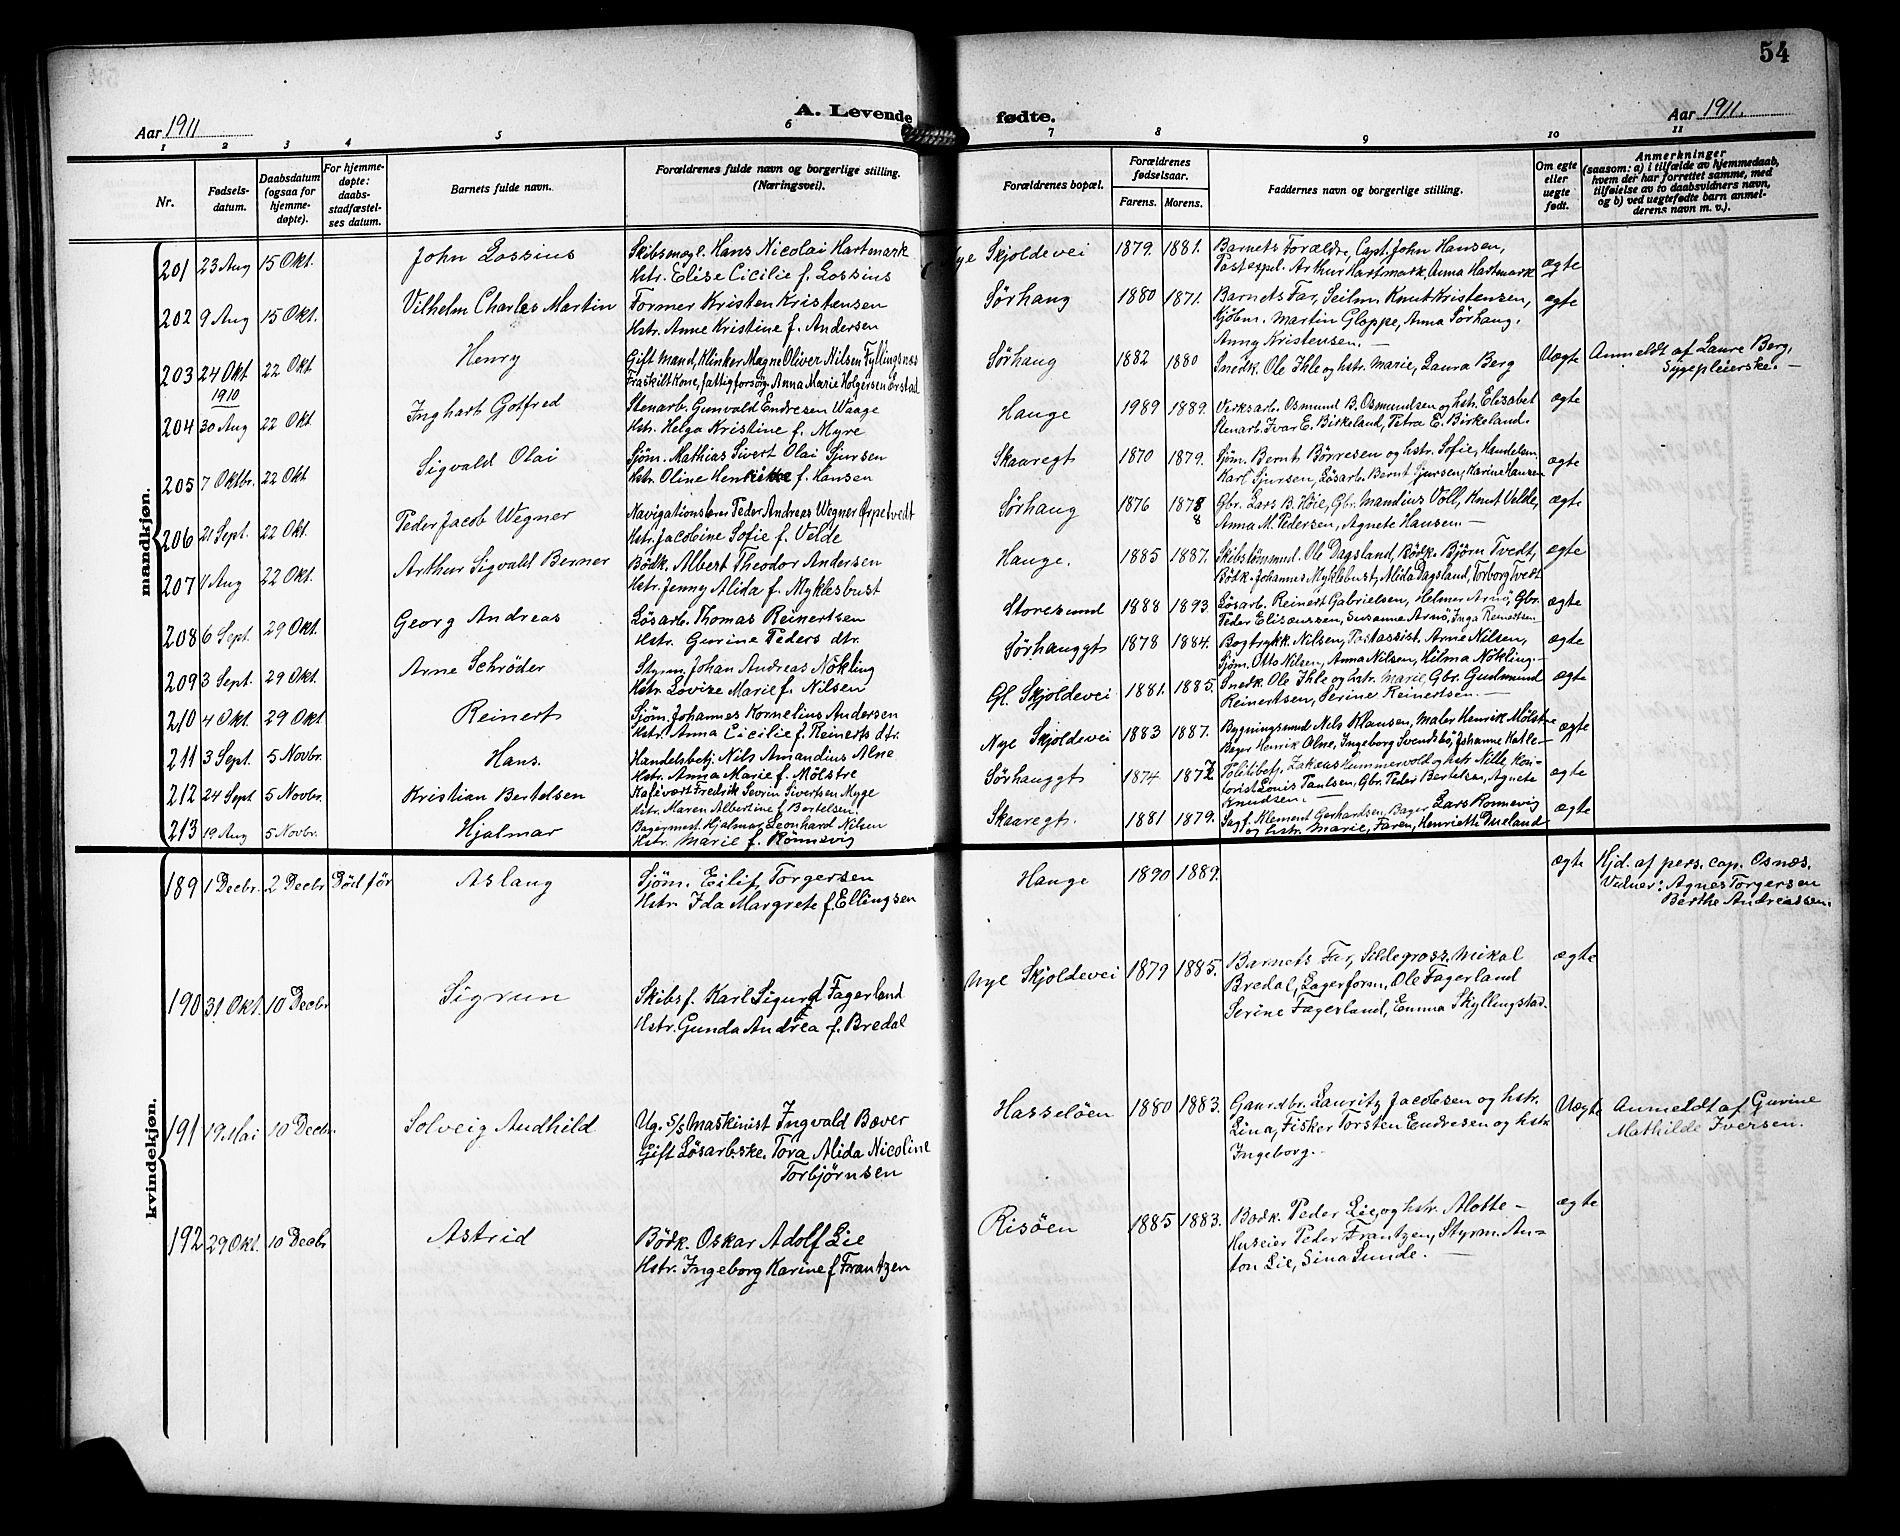 54
A. Levende fødte.
Aar 1911
Aar 1911.
1 2 3 4 5 6 7 8 9 10 11
Nr.
Fødsels-
datum.
Daabsdatum
(ogsaa for
hjemme-
døpte).
For hjemme-
døpte:
daabs-
stadfæstel-
ses datum.
Barnets fulde navn.
Forældrenes fulde navn og borgerlige stilling.
(Næringsvei).
Forældrenes bopæl.
Forældrenes
fødselsaar.
Farens. Morens.
Faddernes navn og borgerlige stilling.
Om egte
eller
uegte
født.
Anmerkninger
(saasom: a) i tilfælde av hjemmedaab,
hvem der har forrettet samme, med
tilføielse av to daabsvidners navn,
og b) ved uegtefødte barn anmel-
derens navn m. v.).
mandkjøn.
201 23 Aug 15 Okt. John Lossius
Skibsmægl. Hans Nicolai Hartmark
Hstr. Elise Cicilie f. Lossius
Nye Skjoldevei 1879. 1881.
Barnets Forældre, Capt. John Hansen,
Postexpel. Arthur Hartmark, Anna Hartmark
ægte
202 9 Aug 15 Okt. Vilhelm Charles Martin
Former Kristen Kristensen
Hstr. Anne Kristine f. Andersen
Sørhaug 1880 1871.
Barnets Far, Seilm. Knut Kristensen,
Kjøbm. Martin Gloppe, Anna Sørhaug,
Anny Kristensen.
ægte
203 24 Okt 1910 22 Okt Henry
Gift mand, Klinker Magne Oliver Nilsen Fyllingsnæs
Fraskilt kone, fattigforsøg. Anna Marie Holgersen Ørstad
Sørhaug 1882 1880
Snedk. Ole Ihle og hstr. Marie, Laura Berg
Uægte
Anmeldt af Laure Berg,
Sygepleierske.
204 30 Aug 22 Okt Inghart Gotfred
Stenarb. Gunvald Endresen Waage
Hstr. Helga Kristine f. Myre
Hauge 1989 1889.
Verksarb. Osmund B. Osmundsen og hstr. Elisabet
Stenarb. Ivar E. Birkeland, Petra E. Birkeland.
ægte
205 7 Oktbr. 22 Okt Sigvald Olai
Sjøm. Mathias Sivert Olai Sjursen
Hstr. Oline Henrikke f. Hansen
Skaaregt 1870 1879.
Sjøm. Bernt Børresen og hstr. Sofie, Handelsm.
Karl Sjursen, Løsarb. Bernt Sjursen, Marine Hansen
ægte
206 21 Sept. 22 Okt. Peder Jacob Wegner
Navigationslærer Peder Andreas Wegner Ørpetvedt
Hstr. Jacobine Sofie f. Velde
Sørhaug 1876 1878
Gbr. Lars B. Høie, Gbr. Mandius Voll, Knut Velde,
Anna M. Pedersen, Agnete Hansen.
ægte
207 11 Aug 22 Okt. Arthur Sigvald Berner
Bødk. Albert Theodor Andersen
Hstr. Jenny Alida f. Myklebust
Hauge. 1885 1887.
Skibstømmmd. Ole Dagsland, Bødk. Bjørn Tvedt,
Bødk. Johannes Myklebust, Alida Dagsland, Torborg Tvedt
ægte
208 6 Sept. 29 Okt. Georg Andreas
Løsarb. Thomas Reinertsen
Hstr. Gurine Peders dtr.
Storesund 1888 1893.
Løsarb. Reinert Gabrielsen, Helmer Arnø, Gbr.
Peder Elisæussen, Susanne Arnø, Inga Reinertsen
ægte
209 3 Sept. 29 Okt. Arne Schrøder
Styrm. Johan Andreas Nökling
Hstr. Lovize Marie f. Nilsen
Sørhauggt 1878 1884.
Bogtrykk. Nilsen, Postassist. Arne Nilsen,
Sjøm. Otto Nilsen, Anna Nilsen, Hilma Nökling
ægte
210 4 Okt. 29 Okt Reinert
Sjøm. Johannes Kornelius Andersen
Hstr. Anna Cicilie f. Reinerts dtr.
Gl. Skjoldevei 1881. 1885.
Snedk. Ole Ihle og hstr. Marie, Gbr. Gudmund
Reinertsen, Serine Reinertsen.
ægte
211 3 Sept. 5 Novbr. Hans.
Handelsbetj. Nils Amandius Alne
Hstr. Anna Marie f. Mølstre
Nye Skjoldevei 1883 1887.
Bygningssmd Nils Klausen, Maler Henrik Mølstre
Bager Henrik Olne, Ingeborg Svendsbø, Johanne Kalle
ægte
212 24 Sept 5 Novbr. Kristian Bertelsen
Kafévært Fredrik Severin Sivertsen Myge
Hstr. Maren Albertine f. Bertelsen
Sørhauggt 1874 1877.
Politibetj. Zakæus Hummervold og hstr. Nille, Kai-
forist Louis Paulsen, Gbr. Peder Bertelsen, Agnete
Knudsen.
ægte
213 19 Aug 5 Novbr. Hjalmar
Bagermest. Hjalmar Leonhard Nilsen
Hstr. Marie f. Rønnevig
Skaaregt. 1881 1879.
Sagf. Klement Gerhardsen, Bager Lars Rønnevig
og hstr. Marie, Faren, Henriette Dueland
ægte
kvindekjøn.
189 1 Decbr. 2 Decbr Død før Aslaug
Sjøm. Eilif Torgersen
Hstr. Ida Margrete f. Ellingsen
Hauge 1890 1889.
ægte
Hjd. af pers. cap. Osnæs.
Vidner: Agnes Torgersen
Berthe Andreassen.
190 31 Okt. 10 Decbr Sigrun
Skibsf. Karl Sigurd Fagerland
Hstr. Gunda Andrea f. Bredal
Nye Skjoldevei 1879 1885.
Barnets Far, Sildegross. Mikal
Bredal, Lagerform. Ole Fagerland
Serine Fagerland, Emma Skyllingstad.
ægte
191 19 Mai 10 Decbr. Solveig Audhild
Ug. S/S Maskinist Ingvald Bæver
Gift Løsarbske. Tora Alida Nicoline
Torbjørnsen
Hasseløen 1880 1883.
Gaardbr. Lauritz Jacobsen og hstr.
Lina, Fisker Torsten Endresen og hstr
Ingeborg.
Uægte
Anmeldt af Gurine
Mathilde Iversen.
192 29 Okt. 10 Decbr Astrid
Bödk. Oskar Adolf Lie
Hstr. Ingeborg Karine f Frantzen
Risöen 1885 1883.
Bødk. Peder Lie, og hstr. Alotte
Huseier Peder Frantzen, Styrm. An-
ton Lie, Sina Sunde.
ægte